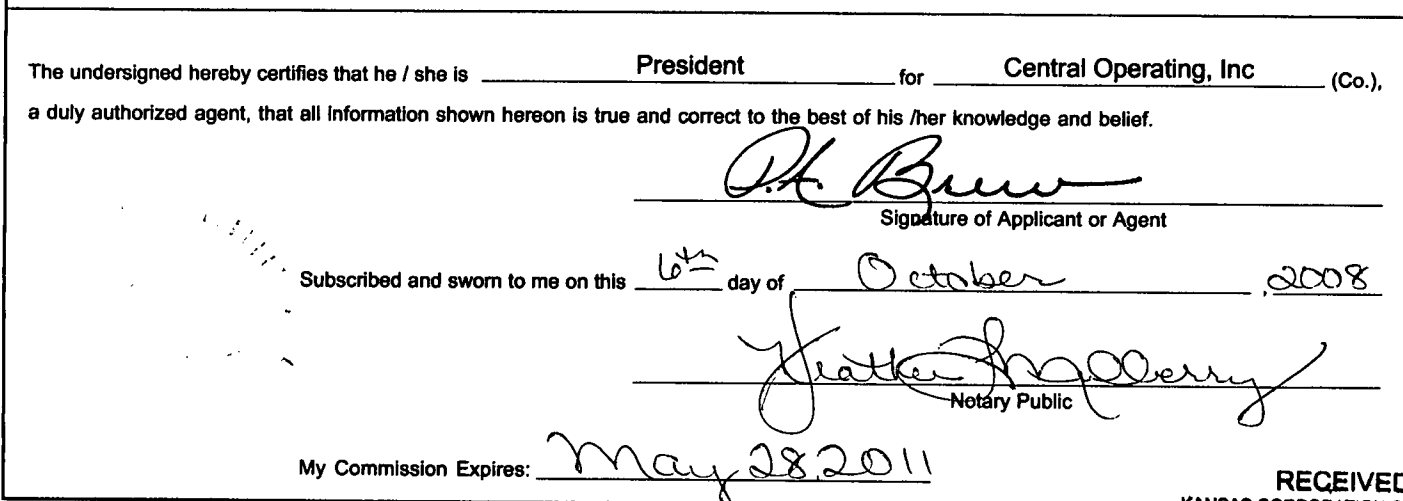 The undersigned hereby certifies that he / she is President for Central Operating, Inc (Co.),
a duly authorized agent, that all information shown hereon is true and correct to the best of his /her knowledge and belief.
P.A. Brew
Signature of Applicant or Agent
Subscribed and sworn to me on this 6th day of October , 2008
Heather
Notary Public
My Commission Expires: May 28, 2011
RECEIVED
KANSAS CORPORATION